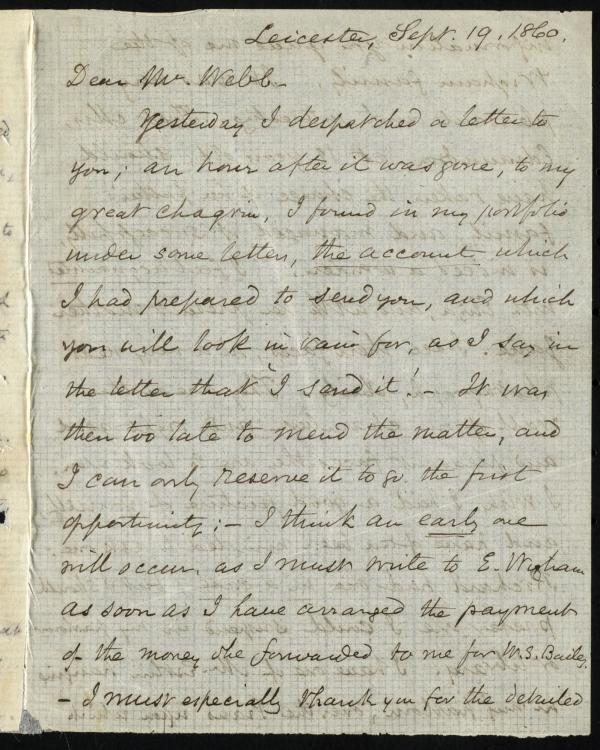 Leicester, Sept. 19, 1860.
Dear Mr. Webb-
Yesterday I despatched a letter to
you; an hour after it was gone, to my
great chagrin, I found in my portfolio
under some letters, the account which
I had prepared to send you, and which
you will look in vain for, as I say in
the letter that "I send it"! - It was
then too late to mend the matter, and
I can only reserve it to go the first
opportunity; - I think an early one
will occur, as I must write to E. Wigham
as soon as I have arranged the payment
of the money she forwarded to me for W. S. Bailey,
- I must especially thank you for the detailed